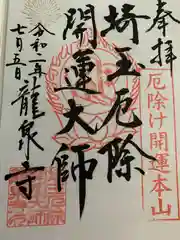 奉拝
厄除け開運本山
埼玉厄除
開運大師
令和二年
七月五日
龍泉寺